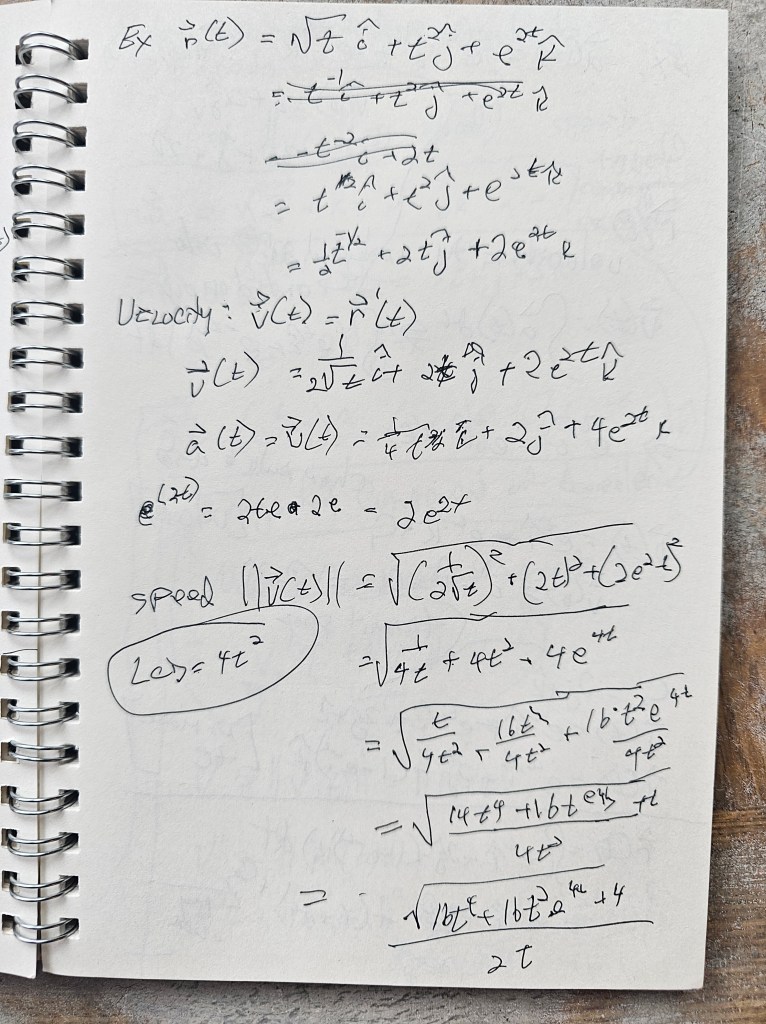 Ex r⃗(t) = √t î + t²ĵ + e²ᵗ k̂
= t⁻¹ î + t²ĵ + e²ᵗ k̂
- t⁻² i + 2t
= t¹ᐟ² î + t²ĵ + e²ᵗ k̂
= ½t⁻¹ᐟ² + 2tĵ + 2e²ᵗ k
Velocity: v⃗(t) = r⃗'(t)
v⃗(t) = 1/(2√t) î + 2t ĵ + 2e²ᵗ k̂
a⃗(t) = v⃗(t) = 1/4 t î + 2ĵ + 4e²ᵗ k
e⁽²ᵗ⁾ = 2te • 2e = 2e²ᵗ
speed ||v⃗(t)|| = √((1/(2√t))² + (2t)² + (2e²ᵗ)²)
LCD = 4t²
= √(1/(4t) + 4t² + 4e⁴ᵗ)
= √(t/(4t²) + 16t⁴/(4t²) + 16·t²e⁴ᵗ/(4t²))
= √((14t⁴ + 16t e⁴ᵗ + t)/(4t²))
= √(16t⁴ + 16t²e⁴ᵗ + 4)/(2t)